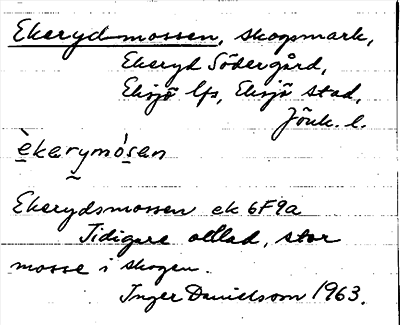 Ekeryd-mossen, skogsmark,
Ekeryd Södergård,
Eksjö lfs, Eksjö stad,
Jönk. l.
èkarymó̀sen
Ekerydsmossen ek 6F9a
Tidigare odlad, stor
mosse i skogen.
Inger Danielsson 1963.